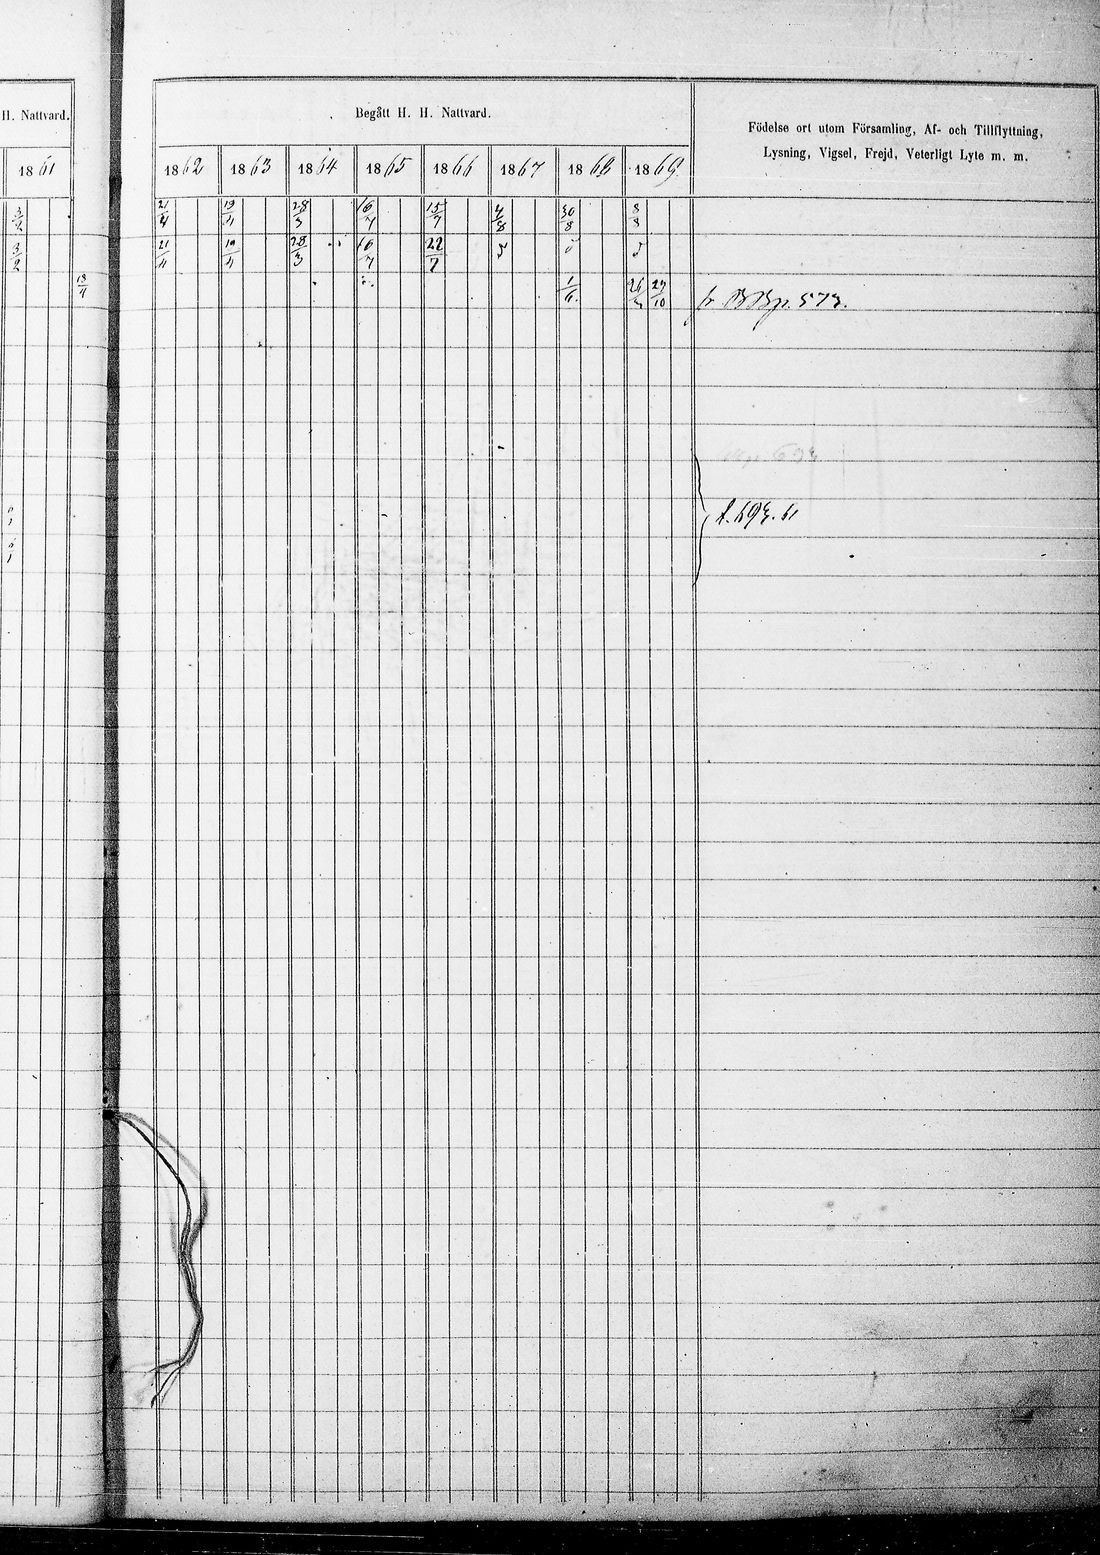 H. Nattvard.
Begått H. H. Nattvard.
Födelse ort utom Församling, Af- och Tillflyttning,
Lysning, Vigsel, Frejd, Veterligt Lyte m. m.
1861 1862 1863 1864 1865 1866 1867 1868 1869
3/2 21/4 19/4 28/3 16/7 15/7 4/8 30/8 8/8
3/2 21/4 19/4 28/3 16/7 22/7
1/6 27/10 573.